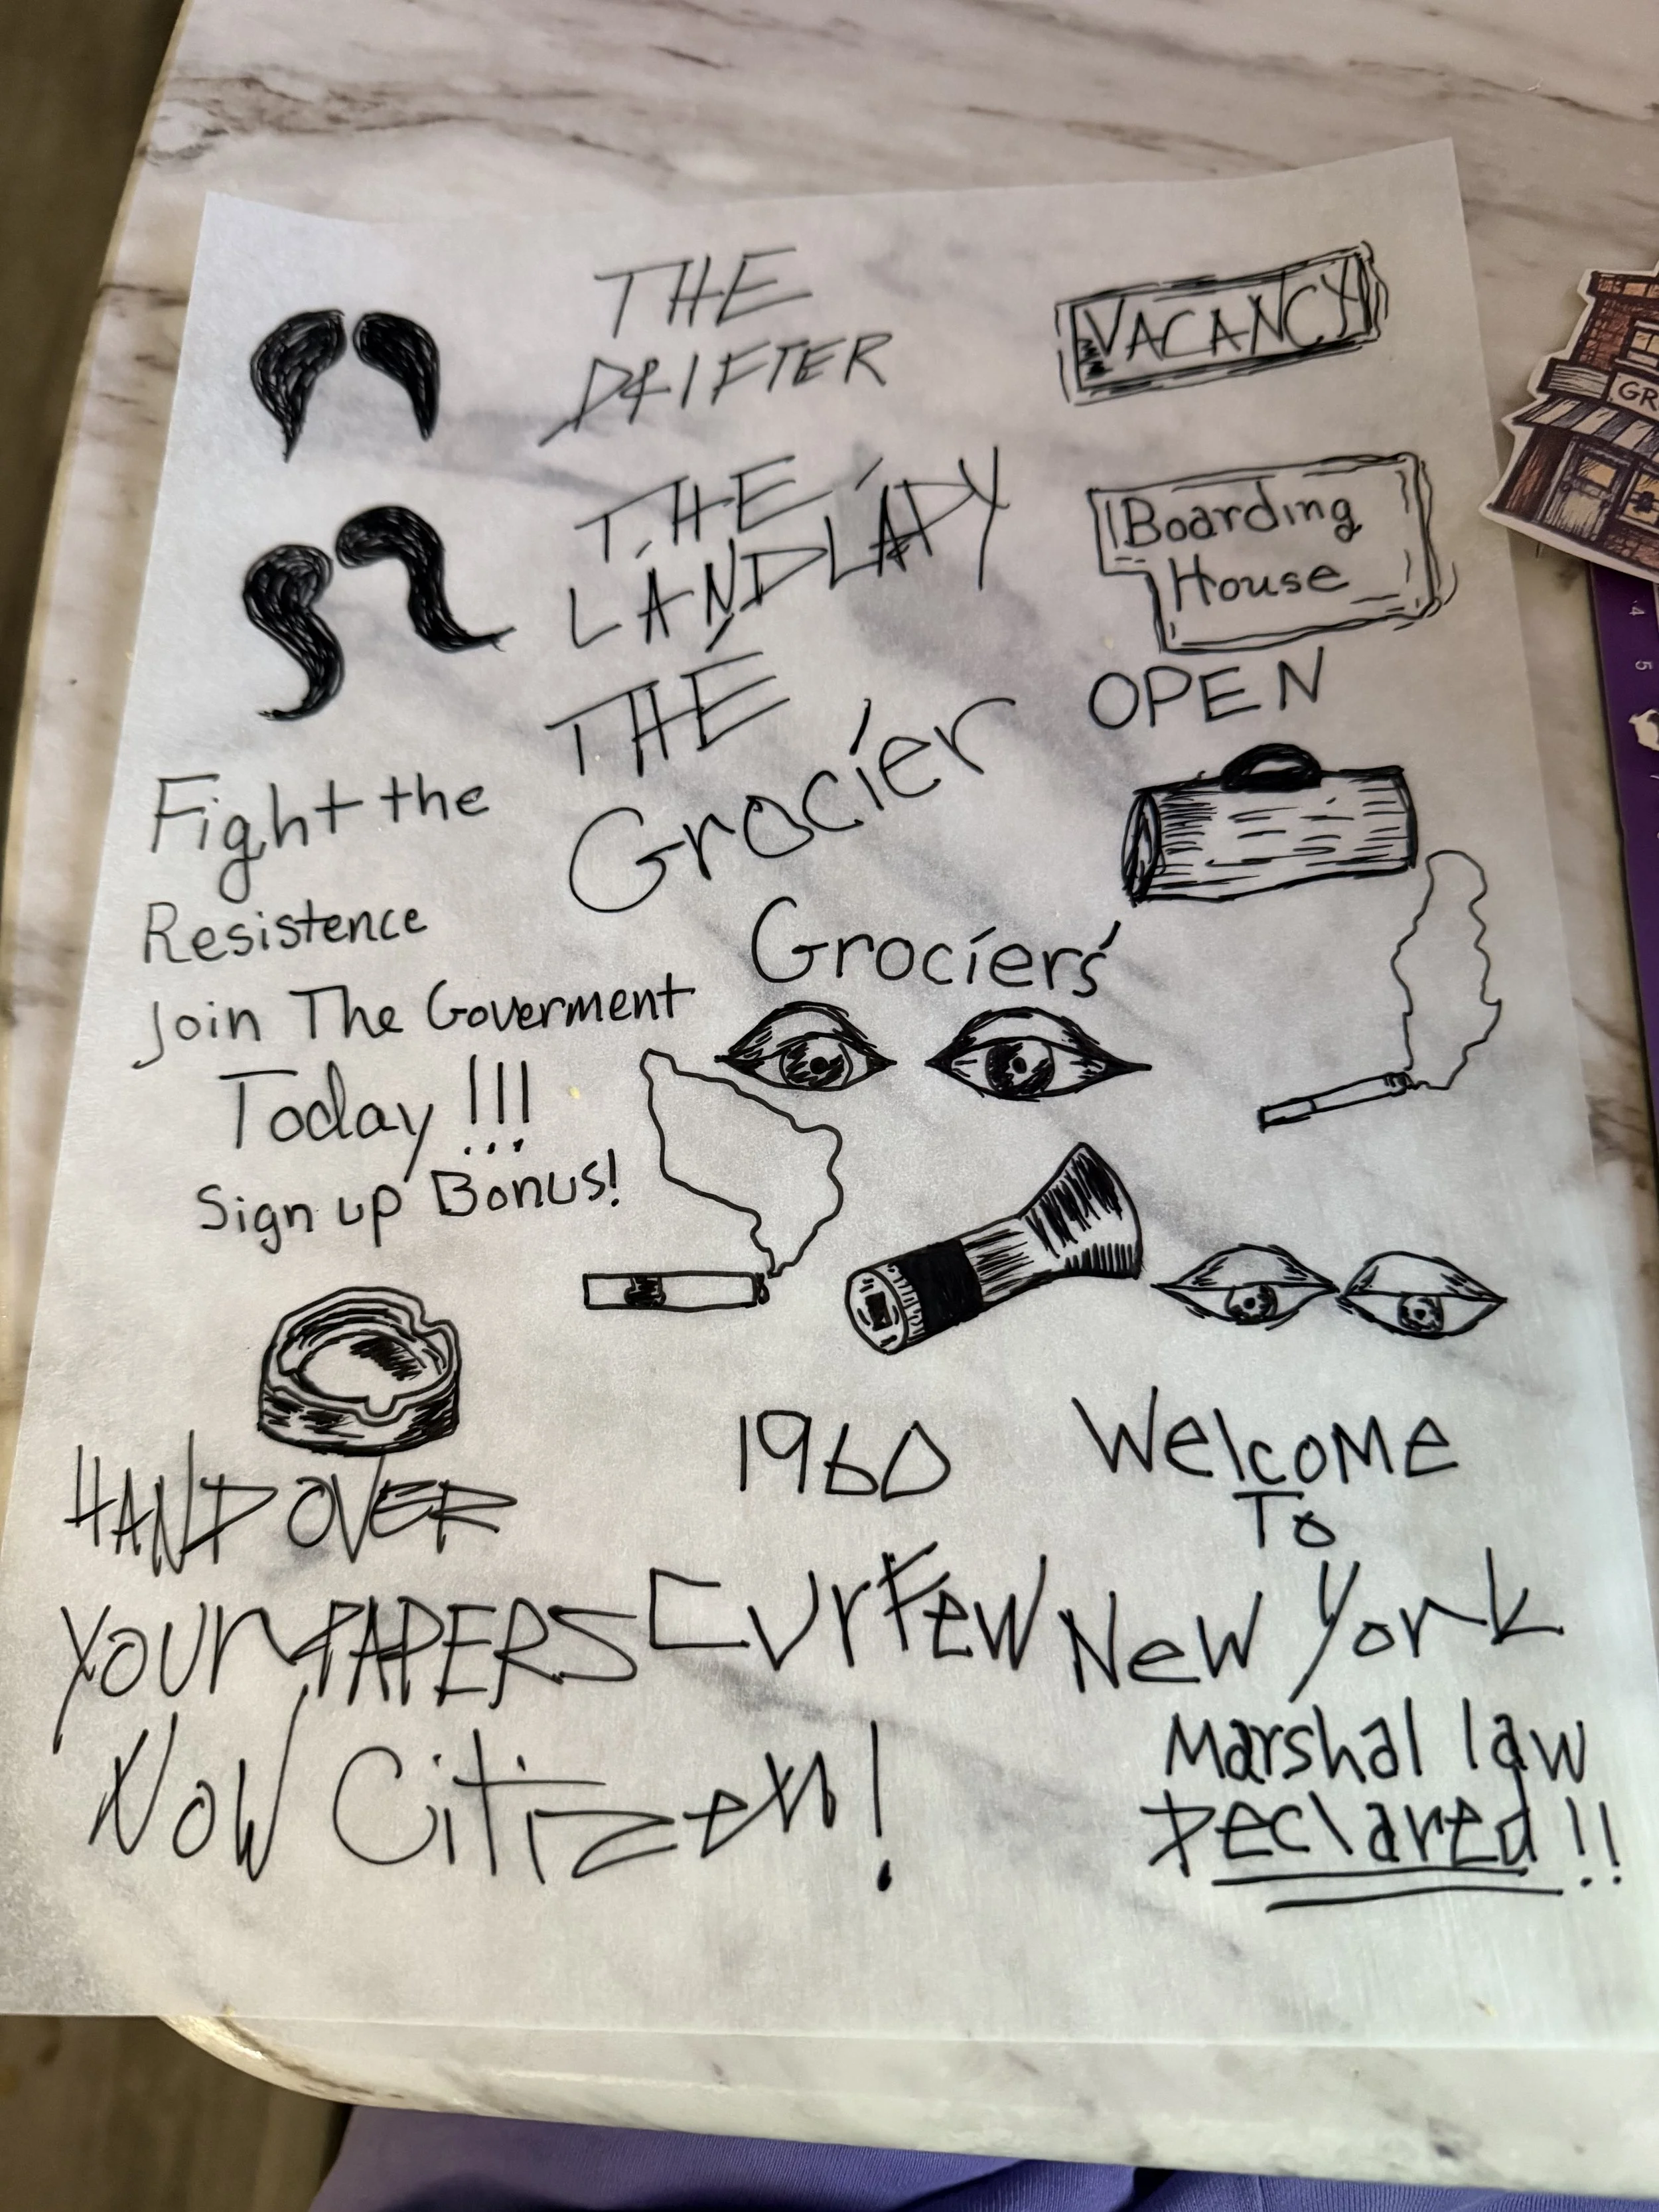 THE
DRIFTER
VACANCY
THE
LANDLADY
Boarding
House
THE
Grocier
OPEN
Fight the
Resistence
Join The Goverment
Today !!!
Sign up Bonus!
Grociers'
HAND OVER
Your PAPERS
Now Citizen!
1960
Curfew
Welcome
To
New York
Marshal law
Declared!!
GR
4
5